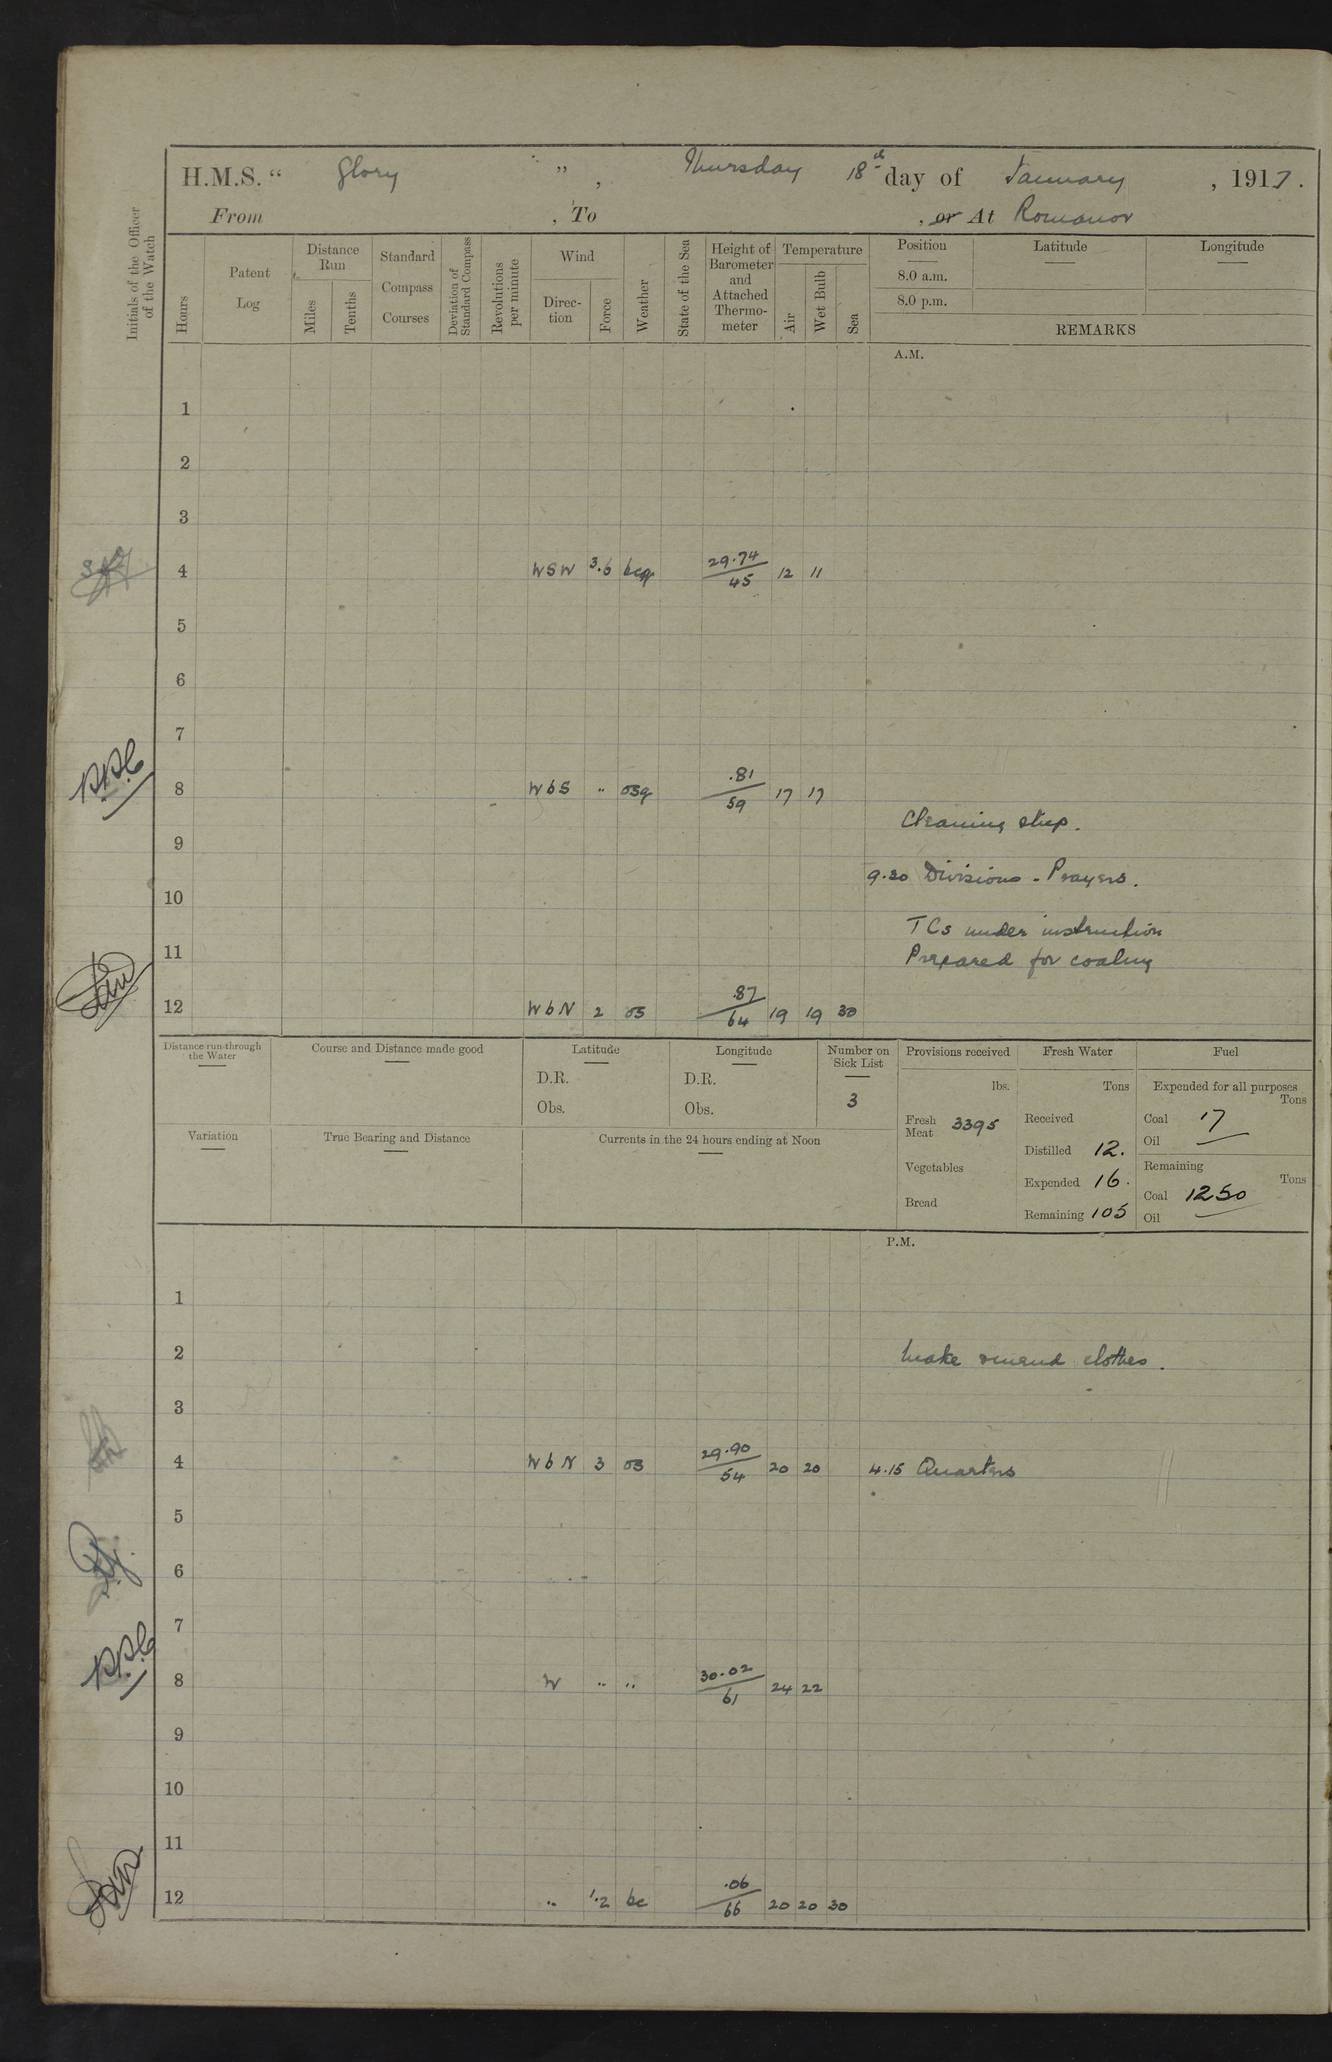 H.M.S. “ Glory ” , Thursday 18th day of January , 1917 .
From , To , or At Romanov
Initials of the Officer of the Watch
Hours
Patent Log
Distance Run
Miles
Tenths
Standard Compass Courses
Deviation of Standard Compass
Revolutions per minute
Wind
Direc- tion
Force
Weather
State of the Sea
Height of Barometer and Attached Thermo- meter
Temperature
Air
Wet Bulb
Sea
Position
8.0 a.m.
8.0 p.m.
Latitude
Longitude
REMARKS
A.M.
1
2
3
4 WSW 3.6 bcq 29.74 / 45 12 11
5
6
7
PPC
8 WbS " osq .81 / 59 17 17
Cleaning ship.
9
9.20 Divisions - Prayers.
10
TCs under instruction
11
Prepared for coaling
12 WbN 2 os .87 / 64 19 19 30
Distance run through the Water
Course and Distance made good
Latitude
D.R.
Obs.
Longitude
D.R.
Obs.
Number on Sick List
3
Provisions received
lbs.
Fresh Meat 3395
Vegetables
Bread
Fresh Water
Tons
Received
Distilled 12.
Expended 16.
Remaining 105
Fuel
Expended for all purposes
Tons
Coal 17
Oil —
Remaining
Tons
Coal 1250
Oil —
Variation
True Bearing and Distance
Currents in the 24 hours ending at Noon
P.M.
1
2 Make & mend clothes.
3
4 WbN 3 os 29.90 / 54 20 20 4.15 Quarters
5
6
7
PPC
8 W " " 30.02 / 61 24 22
9
10
11
12 " 1.2 bc .06 / 66 20 20 30